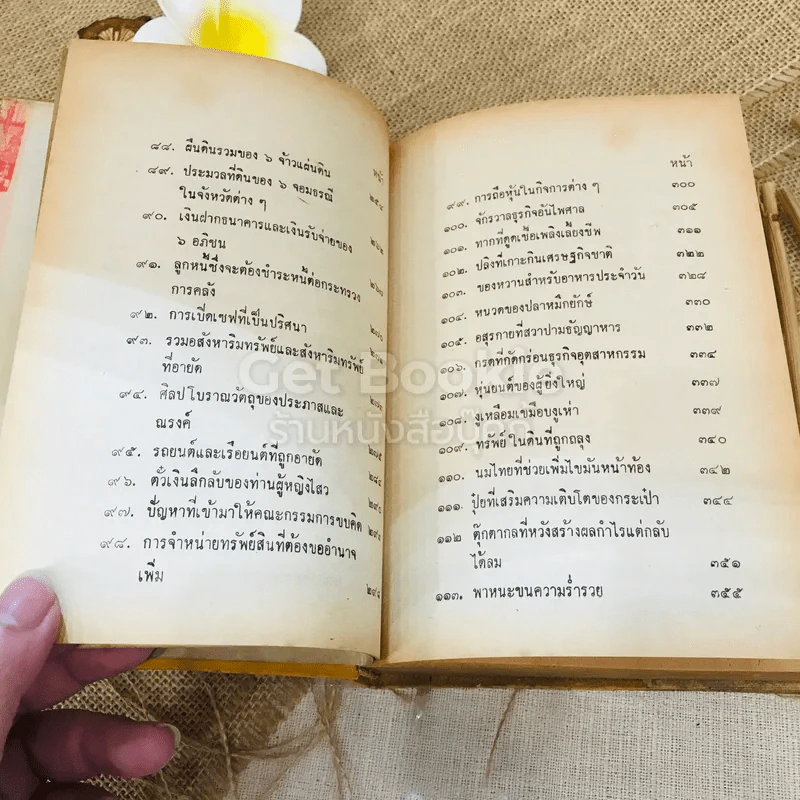 หน้า
๘๘. ผืนดินรวมของ ๖ จ้าวแผ่นดิน
๘๙. ประมวลที่ดินของ ๖ จอมธรณี
ในจังหวัดต่าง ๆ
๙๐. เงินฝากธนาคารและเงินรับจ่ายของ
๖ อภิชน
๙๑. ลูกหนี้ซึ่งจะต้องชำระหนี้ต่อกระทรวง
การคลัง
๙๒. การเปิดเซฟที่เป็นปริศนา
๙๓. รวมอสังหาริมทรัพย์และสังหาริมทรัพย์
ที่อายัด
๙๔. ศิลปโบราณวัตถุของประภาสและ
ณรงค์
๙๕. รถยนต์และเรือยนต์ที่ถูกอายัด
๙๖. ตั๋วเงินลึกลับของท่านผู้หญิงไสว
๙๗. ปัญหาที่เข้ามาให้คณะกรรมการขบคิด
๙๘. การจำหน่ายทรัพย์สินที่ต้องขออำนาจ
เพิ่ม
หน้า
๙๙. การถือหุ้นในกิจการต่าง ๆ ๓๐๐
๑๐๐. จักรวาลธุรกิจอันไพศาล ๓๐๕
๑๐๑. ทากที่ดูดเชื้อเพลิงเลี้ยงชีพ ๓๑๑
๑๐๒. ปลิงที่เกาะกินเศรษฐกิจชาติ ๓๒๒
๑๐๓. ของหวานสำหรับอาหารประจำวัน ๓๒๘
๑๐๔. หนวดของปลาหมึกยักษ์ ๓๓๐
๑๐๕. อสุรกายที่สวาปามธัญญาหาร ๓๓๒
๑๐๖. กรดที่กัดกร่อนธุรกิจอุตสาหกรรม ๓๓๔
๑๐๗. หุ่นยนต์ของผู้ยิ่งใหญ่ ๓๓๗
๑๐๘. งูเหลือมเขมือบงูเห่า ๓๓๙
๑๐๙. ทรัพย์ในดินที่ถูกถลุง ๓๔๐
๑๑๐. นมไทยที่ช่วยเพิ่มไขมันหน้าท้อง ๓๔๒
๑๑๑. ปุ๋ยที่เสริมความเติบโตของกระเป๋า ๓๔๔
๑๑๒ ตุ๊กตากลที่หวังสร้างผลกำไรแต่กลับ
ได้ลม ๓๕๑
๑๑๓. พาหนะขนความร่ำรวย ๓๕๕
Get Bookie
ร้านหนังสือบุ๊คกี้